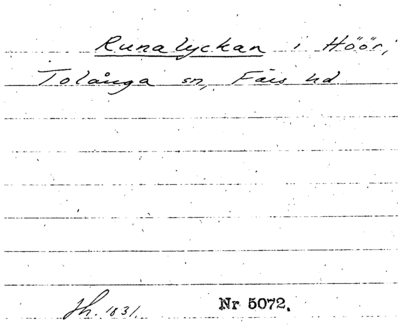 Runalyckan i Höör,
Tolånga sn, Färs hd
Jh. 1831. Nr 5072.